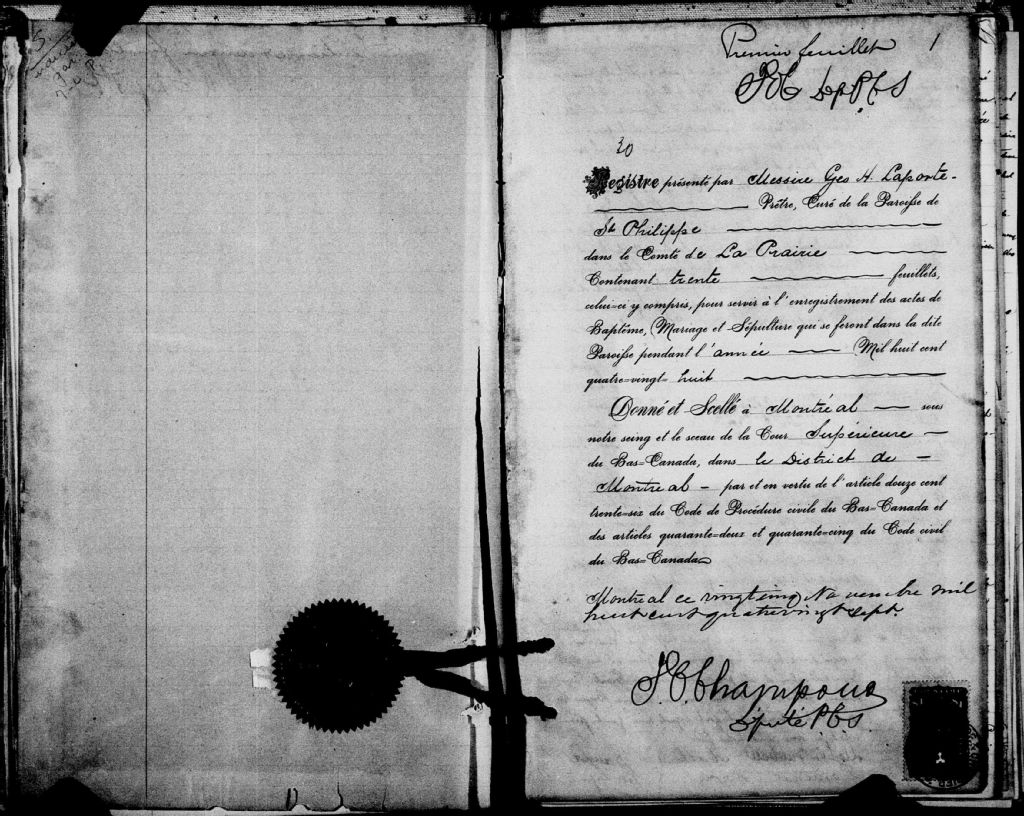 Premier feuillet
1
Dp P C S
30
Registre présenté par Messire Geo A. Laporte
Prêtre, Curé de la Paroisse de
St Philippe
dans le Comté de La Prairie
Contenant trente feuillets,
celui-ci y compris, pour servir à l'enregistrement des actes de
Baptême, Mariage et Sépulture qui se feront dans la dite
Paroisse pendant l'année Mil huit cent
quatre-vingt huit
Donné et Scellé à Montréal sous
notre seing et le sceau de la Cour Supérieure
du Bas-Canada, dans le District de
Montreal par et en vertu de l'article douze cent
trente-six du Code de Procédure civile du Bas-Canada et
des articles quarante-deux et quarante-cinq du Code civil
du Bas-Canada
Montreal ce vingt cinq Novembre mil
huit cent quatre vingt sept.
Champoux
Député P.C.S.